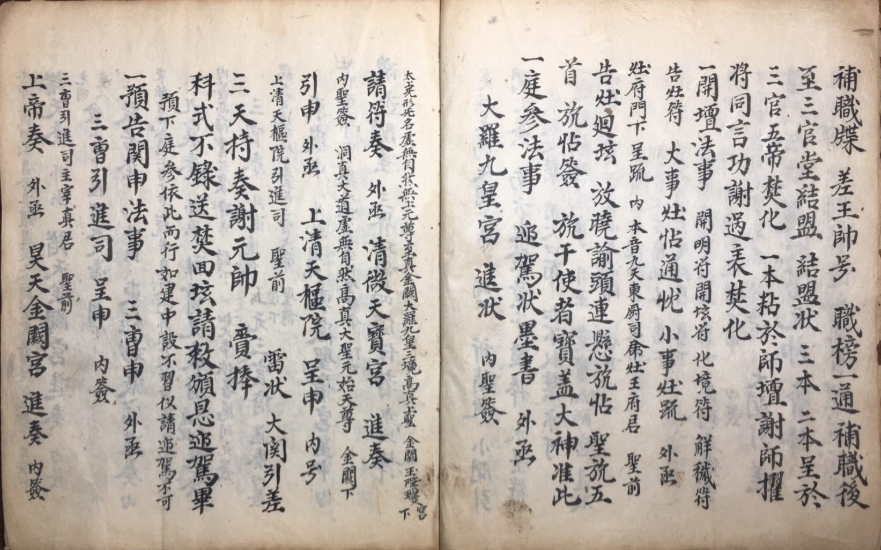 補職牒 差王帥号 職榜一通補職後
至三官堂結盟 結盟狀 三本 二本呈於
三官五帝焚化 一本粘於師壇謝師擢
將同言功謝過表焚化
一開壇法事 開明符開坛符化境符 觧穢符
告灶符 大事灶帖通忱 小事灶疏 外函
灶府門下呈疏 内 本音九天東厨司命灶王府君 聖前
告灶廻坛 放曉諭頭連懸旒帖 聖旒五
首 旒帖簽 旒干使者寶盖大神准此
一庭参法事 迎駕狀墨書 外函
大羅九皇宮 進狀 内聖簽
太upper形先名虛無自然無上元尊至真金闕大羅九皇三境高真上聖 金闕玉陛瓊宮下
請符奏 外函 清微天寶宮 進奏
内聖簽 洞真大道虛無自然高真大聖元始天尊 金闕下
引申 外函 上清天樞院 呈申 内号
上清天樞院引進司 聖前 雷狀 大関引差
三天持奏謝元帥 賫捧
科式不錄送焚回坛請赦頒恩迎駕畢
預下庭参依此而行如建中設不習仪請迎駕不可
一預告関申法事 三曹申 外函
三曹引進司 呈申 内簽
三曹引進司主宰真君 聖前
上帝奏 外函 昊天金闕宮 進奏 内簽